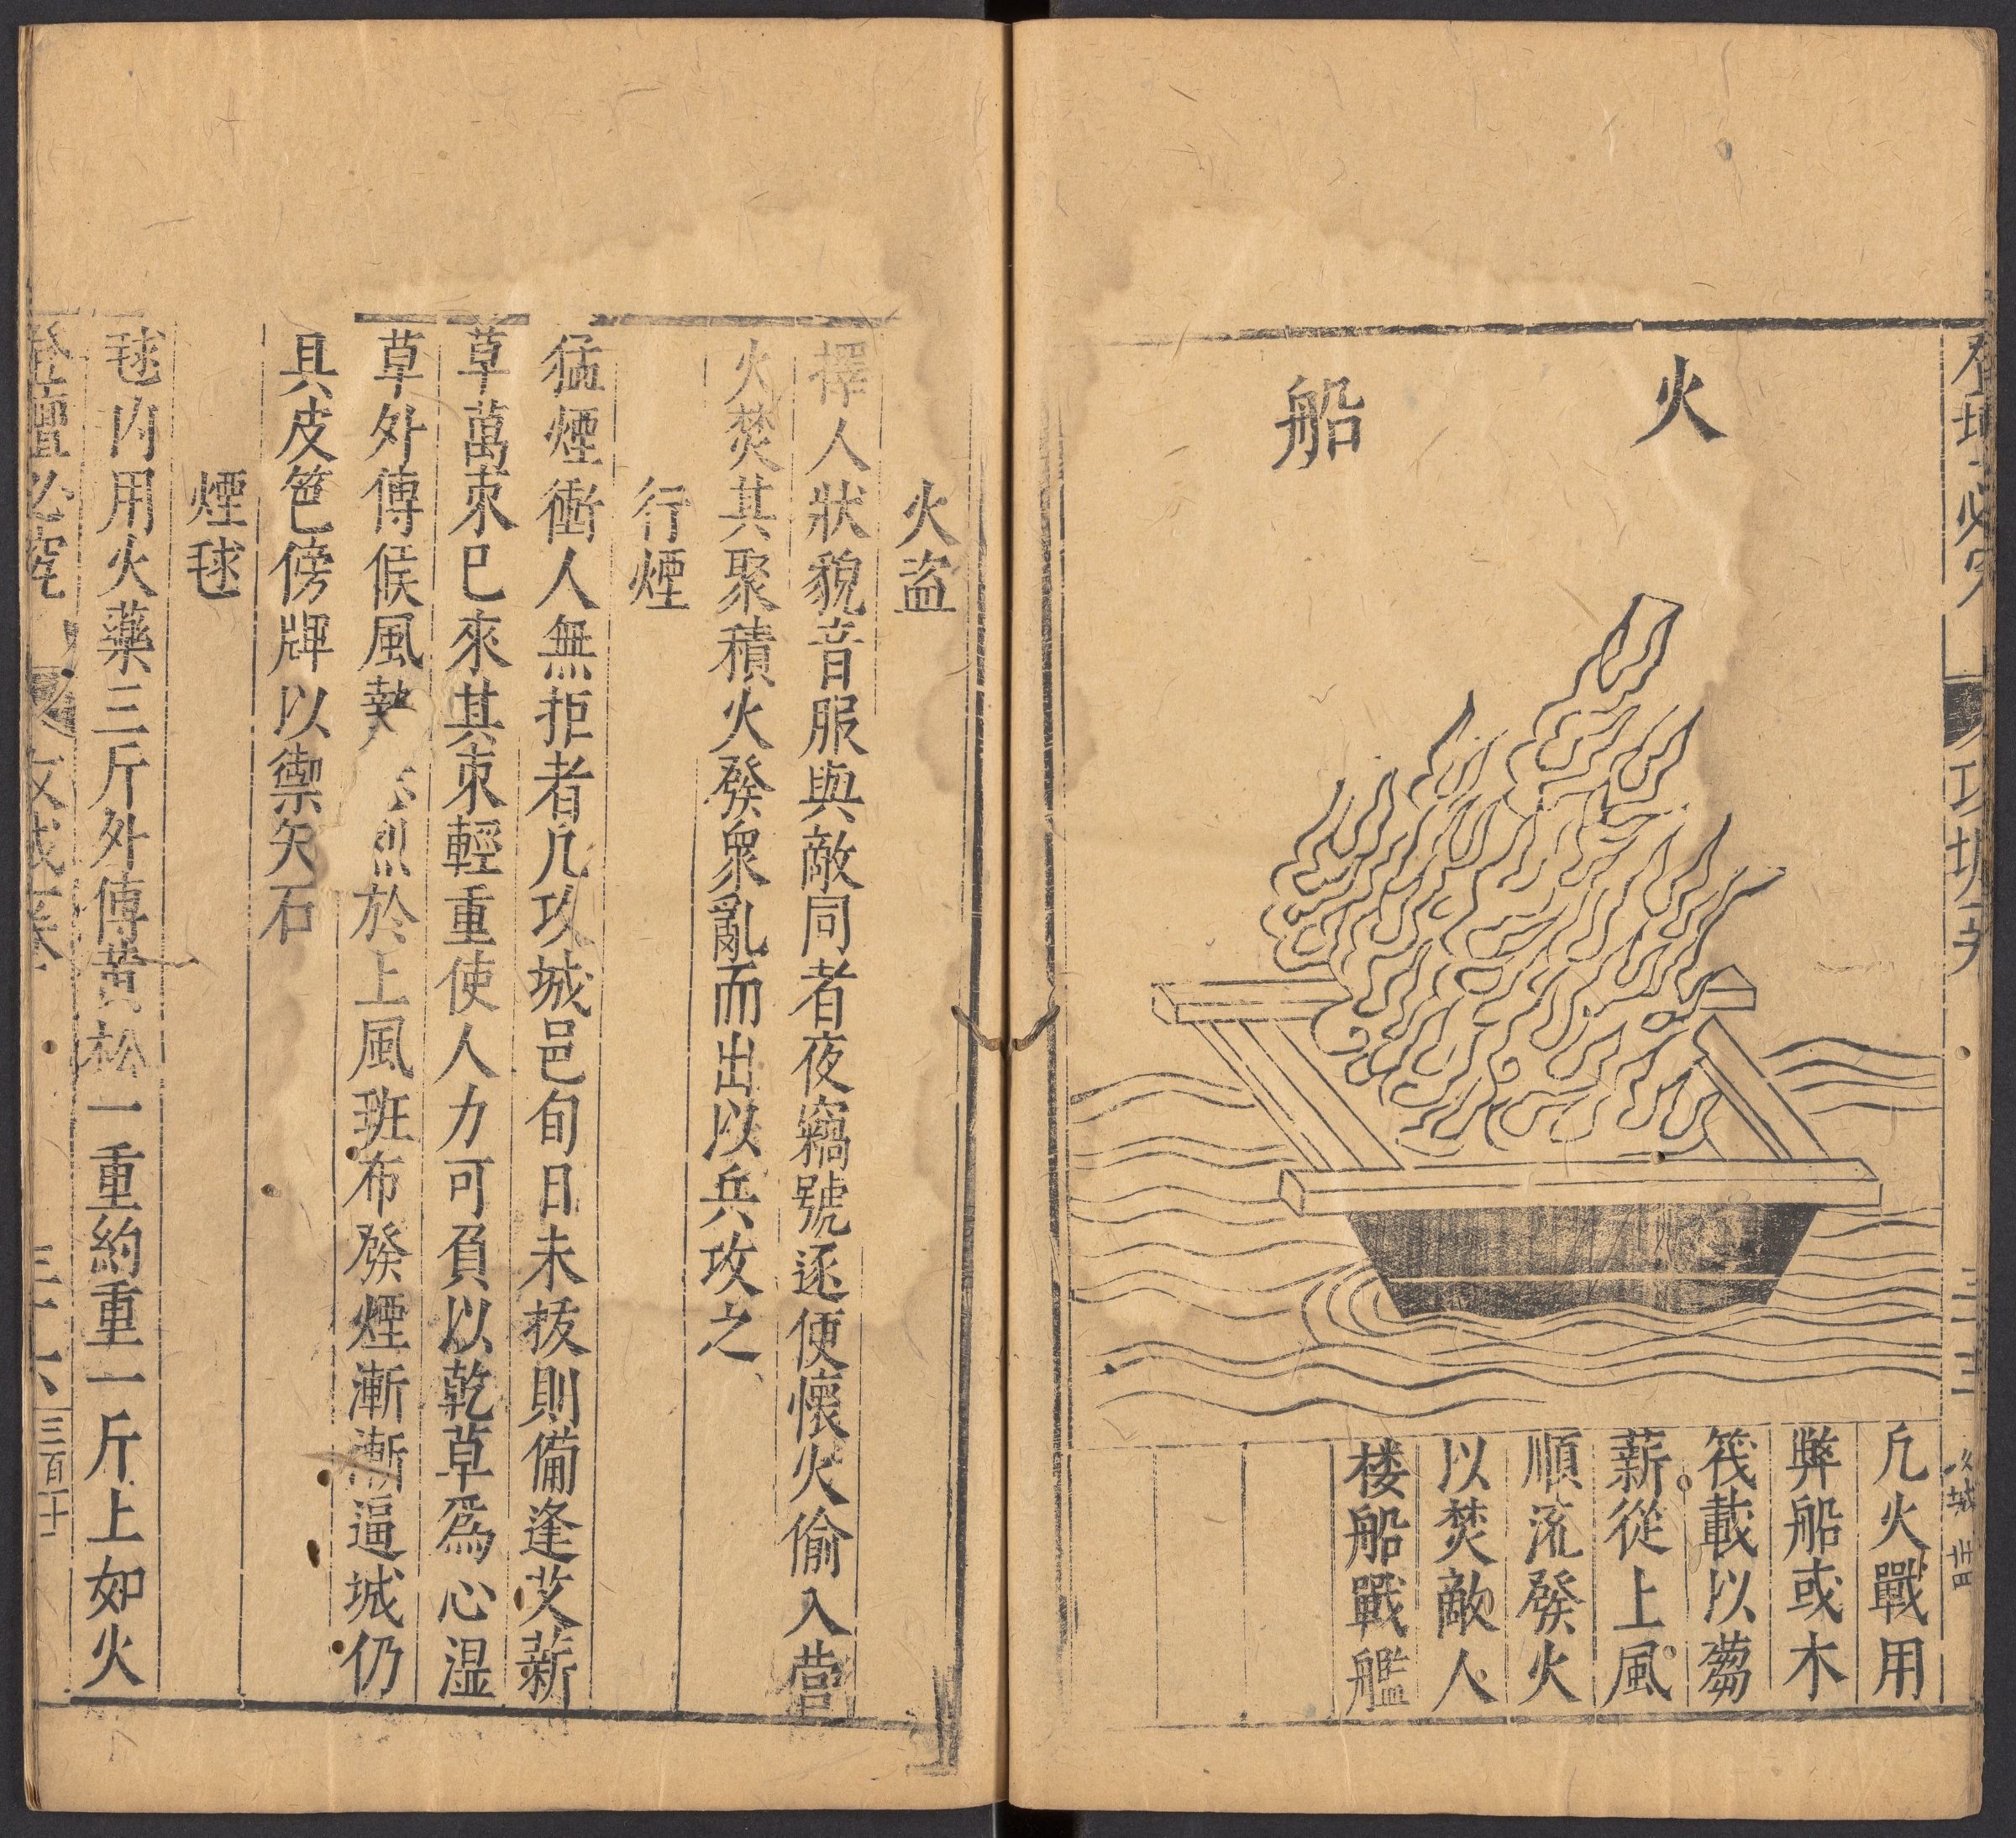 火船
凢火戰用
弊船或木
筏載以蒭
薪從上風
順流發火
以焚敵人
楼船戰艦
火盗
擇人狀貌音服與敵同者夜竊號逐便懷火偷入營
火焚其聚積火發衆亂而出以兵攻之
行煙
猛煙衝人無拒者凢攻城邑旬日未拔則備逢艾薪
草萬束已來其束輕重使人力可負以乾草爲心湿
草外傅候風埶烈於上風班布發煙漸漸逼城仍
具皮笆傍牌以禦矢石
煙毬
毬内用火藥三斤外傅黄松一重約重一斤上如火
登壇必究
三百二十